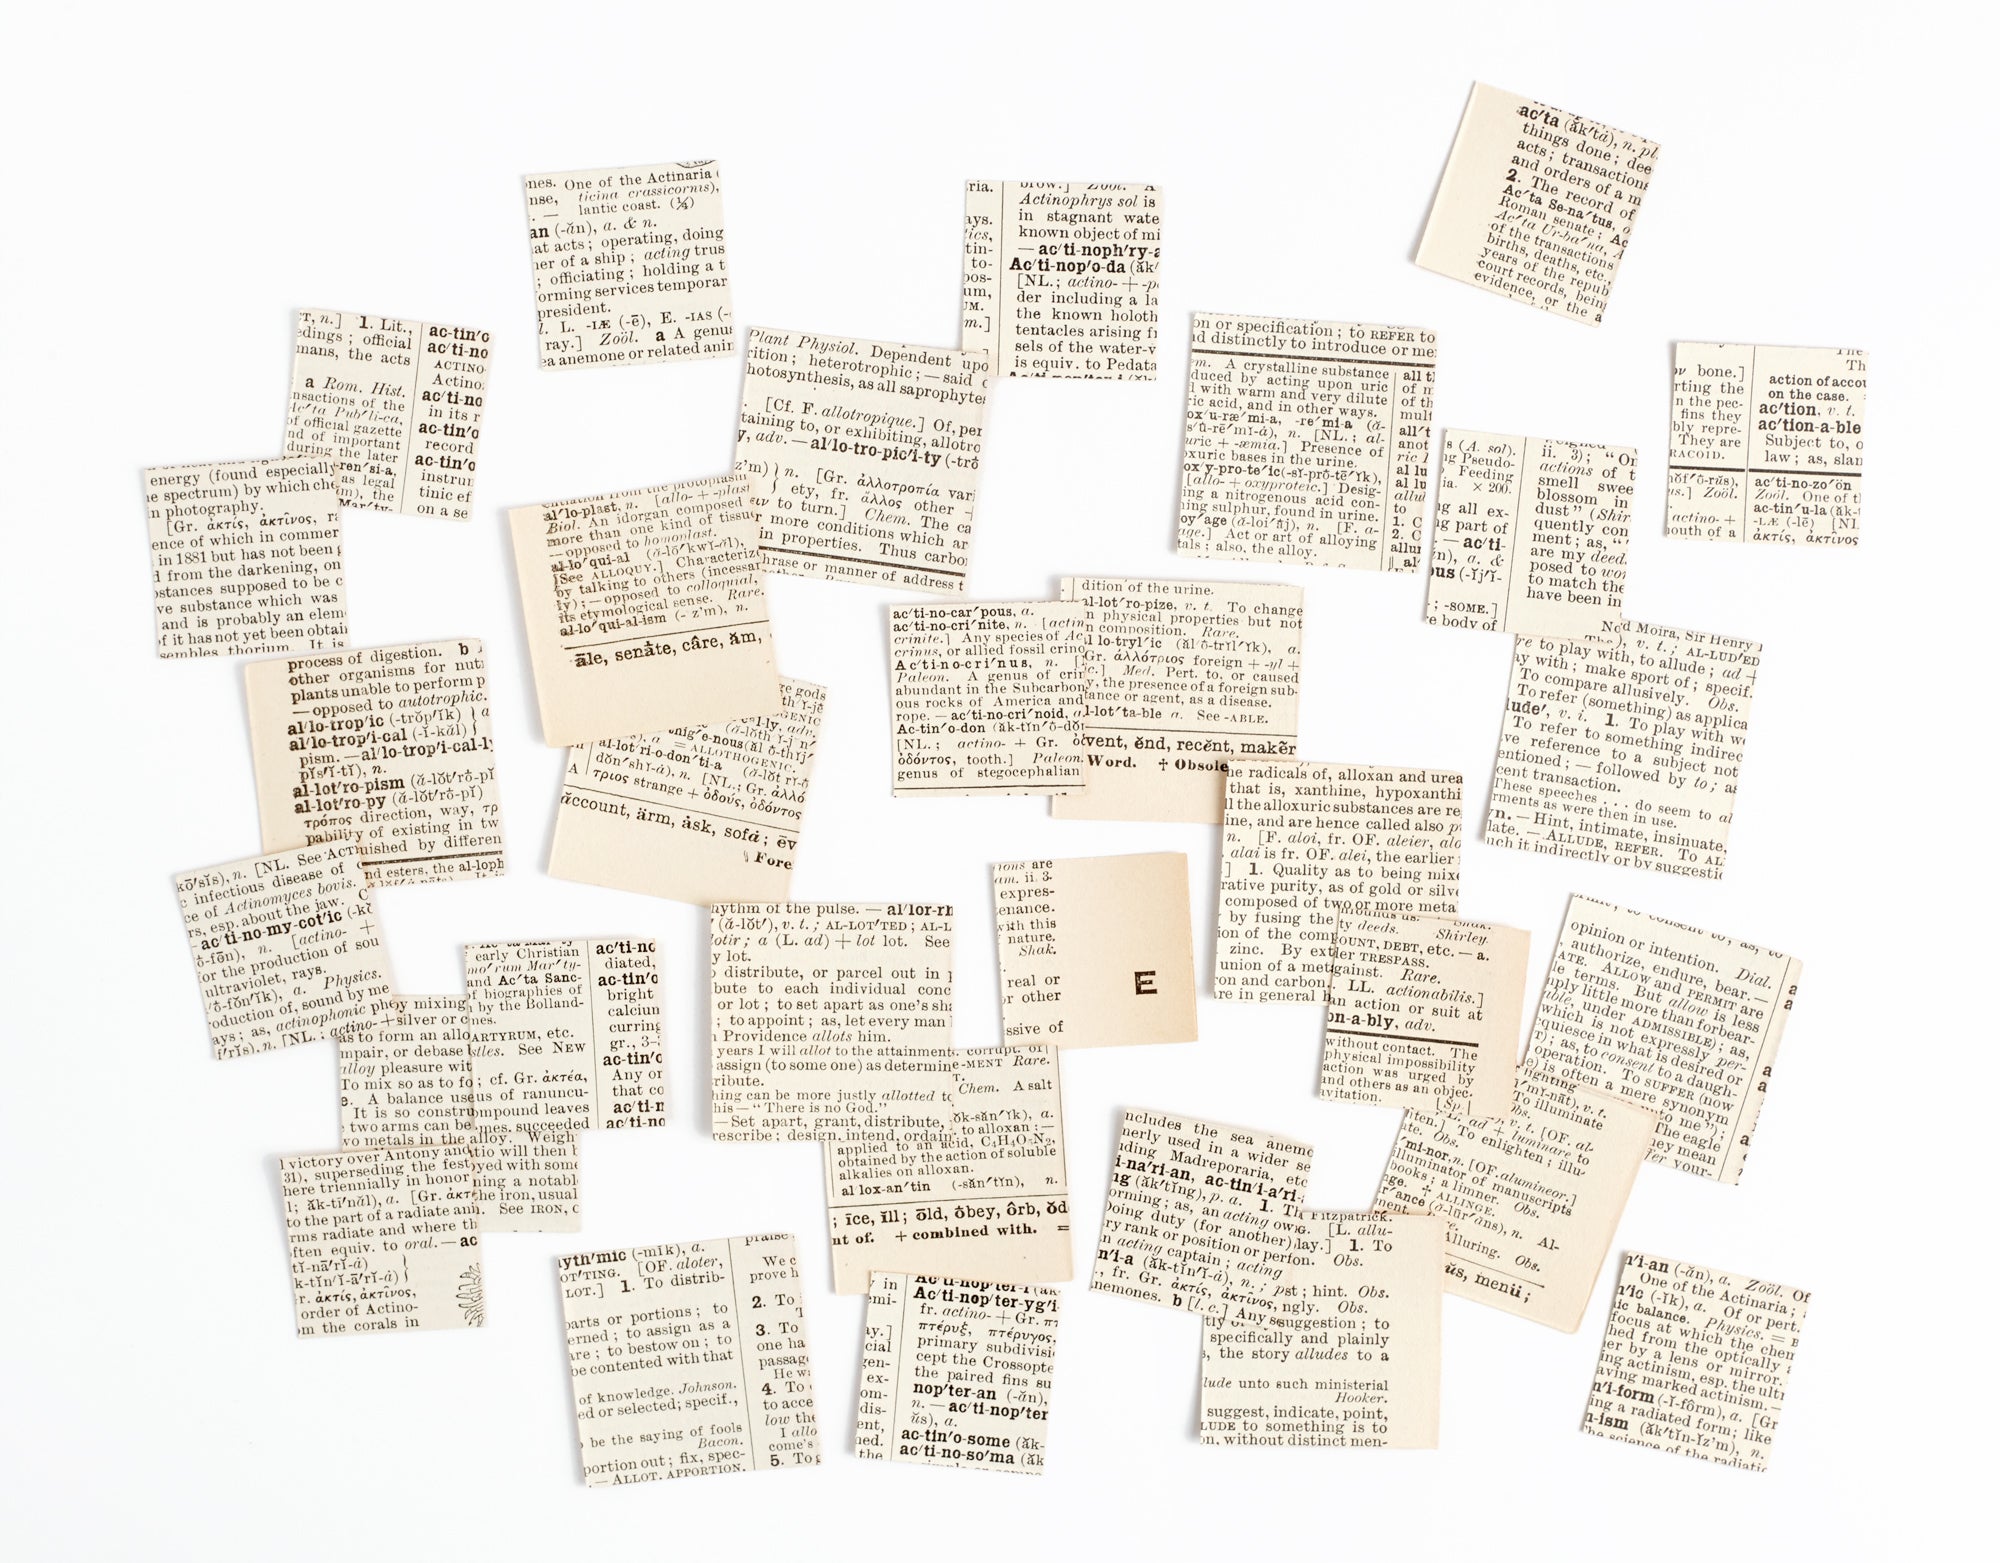 ac′ta (ăk′tȧ), n. pl.
things done; dee
acts; transactions
and orders of a m
2. The record of
Ac′ta Se-na′tus, o
Roman senate; Ac
Ac′ta Ur-ba′na, A
of the transactions
births, deaths, etc.,
years of the repub
court records, being
evidence, or the a
nes. One of the Actinaria (
nse, ticina crassicornis),
. — lantic coast. (¼)
an (-ăn), a. & n.
at acts; operating, doing
er of a ship; acting trus
; officiating; holding a t
orming services temporar
president.
l. L. -IÆ (-ē), E. -IAS (-
ray.] Zoöl. a A genu
ea anemone or related anin
ria.
ays.
tics,
tin-
to-
os-
um,
UM.
m.]
brow.] Zoöl. A
Actinophrys sol is
in stagnant wate
known object of mi
— ac′ti-noph′ry-a
Ac′ti-nop′o-da (ăk′
[NL.; actino- + -p
der including a la
the known holoth
tentacles arising fr
sels of the water-v
is equiv. to Pedata
T, n.] 1. Lit.,
dings; official
mans, the acts
a Rom. Hist.
nsactions of the
Ac′ta Pub′li-ca,
of official gazette
nd of important
during the later
ren′si-a,
as legal
m), the
Mar′ty-
ac-tin′o
ac′ti-no
ACTINO-
Actino.
ac′ti-no
in its r
ac-tin′o
record
ac-tin′o
instrun
tinic ef
on a se
Plant Physiol. Dependent upo
rition; heterotrophic; — said o
hotosynthesis, as all saprophytes
[Cf. F. allotropique.] Of, per
taining to, or exhibiting, allotro
y, adv. — al′lo-trop′ic′i-ty (-trŏ
z'm) } n. [Gr. ἀλλοτροπία vari
ety, fr. ἄλλος other +
ειν to turn.] Chem. The ca
r more conditions which ar
in properties. Thus carbo
hrase or manner of address t
on or specification; to REFER to
nd distinctly to introduce or me
m. A crystalline substance
duced by acting upon uric
l with warm and very dilute
ric acid, and in other ways.
ox′u-ræ′mi-a, -re′mi-a (ă-
s′ŭ-rē′mĭ-ȧ), n. [NL.; al-
uric + -æmia.] Presence of
oxuric bases in the urine.
ox′y-pro-te′ic(-sĭ-prô-tē′ĭk),
[allo- + oxyproteic.] Desig-
ing a nitrogenous acid con-
ing sulphur, found in urine.
oy′age (ă-loi′ȧj), n. [F. a-
age.] Act or art of alloying
tals; also, the alloy.
all tl
of m
of th
mult
all′t
anot
ric l
al lu
al lu
allud
to
1. C
2. C
allur
ν bone.]
rting the
n the pec-
fins they
bly repre-
They are
RACOID.
nŏf′ō-rŭs),
us.] Zoöl.
actino- +
outh of a
The
Th
action of accou
on the case.
ac′tion, v. t.
ac′tion-a-ble
Subject to, o
law; as, slan
ac′ti-no-zo′ön
Zoöl. One of tl
ac-tin′u-la (ăk-t
-LÆ (-lē) [NL
ἀκτίς, ἀκτῖνος
s (A. sol).
ng Pseudo-
Feeding
ia. × 200.
ng all ex-
ng part of
— ac′ti-
n), a. &
ous (-ĭj′ĭ-
; -SOME.]
e body of
ii. 3); “Or
actions of t
smell swee
blossom in
dust” (Shir
quently con
ment; as, “
are my deed.
posed to wor
to match the
have been in
energy (found especially
e spectrum) by which che
n photography.
[Gr. ἀκτίς, ἀκτῖνος, ra
ence of which in commer
in 1881 but has not been
d from the darkening, on
ostances supposed to be c
ve substance which was
and is probably an elem
f it has not yet been obtain
sembles thorium. It is
entiation from the protoplasm
al′lo-plast, n. [allo- + -plast
Biol. An idorgan composed o
more than one kind of tissue
— opposed to homoplast.
al-lo′qui-al (ă-lō′kwĭ-ăl),
[See ALLOQUY.] Characteriz
by talking to others (incessan
ly); — opposed to colloquial,
its etymological sense. Rare.
al-lo′qui-al-ism (- z'm), n.
āle, senâte, câre, ăm,
dition of the urine.
al-lot′ro-pize, v. t. To change
n physical properties but not
n composition. Rare.
l lo-tryl′ic (ăl ŏ-trĭl′ĭk), a.
Gr. ἀλλότριος foreign + -yl +
c.] Med. Pert. to, or caused
y, the presence of a foreign sub-
tance or agent, as a disease.
l-lot′ta-ble a. See -ABLE.
vent, ĕnd, recĕnt, makẽr
Word. ‡ Obsole
ac′ti-no-car′pous, a.
ac′ti-no-cri′nite, n. [actin
crinite.] Any species of Ac
crinus, or allied fossil crino
Ac′ti-no-cri′nus, n. [
Paleon. A genus of crin
abundant in the Subcarbon
ous rocks of America and
rope. — ac′ti-no-cri′noid, a
Ac-tin′o-don (ăk-tĭn′ō-dŏn
[NL.; actino- + Gr. ὀδ
ὀδόντος, tooth.] Paleon.
genus of stegocephalian
ed Moira, Sir Henry
), v. t.; AL-LUD′ED
e to play with, to allude; ad +
ay with; make sport of; specif.
To compare allusively. Obs.
To refer (something) as applica
lude′, v. i. 1. To play with w
To refer to something indirec
ve reference to a subject not
entioned; — followed by to; as
cent transaction.
These speeches . . . do seem to al
rments as were then in use.
yn. — Hint, intimate, insinuate,
late. — ALLUDE, REFER. To AL
uch it indirectly or by suggestio
process of digestion. b
other organisms for nutr
plants unable to perform p
— opposed to autotrophic.
al′lo-trop′ic (-trŏp′ĭk) } a
al′lo-trop′i-cal (-ĭ-kăl)
pism. — al′lo-trop′i-cal-ly
pĭs′ĭ-tĭ), n.
al-lot′ro-pism (ă-lŏt′rô-pĭ
al-lot′ro-py (ă-lŏt′rô-pĭ)
τρόπος direction, way, τρ
pability of existing in tw
uished by differen
nd esters, the al-loph
e gods
th′ĭ-jē
OGENIC
cal-ly, adv.
ŏth ĭ-j n′
nig′e-nous (ăl ŏ-thĭj′
= ALLOTHOGENIC.
al-lot′ri-o-don′ti-a (ă-lŏt rĭ-ŏ
dŏn′shĭ-ȧ), n. [NL.; Gr. ἀλλό
τριος strange + ὀδούς, ὀδόντος
A
ăccount, ärm, ȧsk, sofȧ; ēv
‖ Fore
he radicals of, alloxan and urea
that is, xanthine, hypoxanthi
ll the alloxuric substances are re
ine, and are hence called also p
n. [F. aloi, fr. OF. aleier, alo
alai is fr. OF. alei, the earlier
] 1. Quality as to being mixe
rative purity, as of gold or silve
composed of two or more meta
by fusing the
ion of the comp
zinc. By ext
union of a met
on and carbon.
re in general h
kō′sĭs), n. [NL. See ACTI
c infectious disease of
ce of Actinomyces bovis.
rs, esp. about the jaw. C
- ac′ti-no-my-cot′ic (-kŏ
ŏ-fōn), n. [actino- +
for the production of sou
ultraviolet, rays.
ŏ-fŏn′ĭk), a. Physics.
oduction of, sound by me
ays; as, actinophonic pho
f′rĭs), n. [NL.; actino- +
hythm of the pulse. — al′lor-rh
(ă-lŏt′), v. t.; AL-LOT′TED; AL-L
lotir; a (L. ad) + lot lot. See
y lot.
o distribute, or parcel out in p
bute to each individual conc
or lot; to set apart as one's sha
; to appoint; as, let every man
Providence allots him.
years I will allot to the attainment
assign (to some one) as determine
ribute.
hing can be more justly allotted to
his — “There is no God.”
— Set apart, grant, distribute,
rescribe; design, intend, ordain
ions are
am. ii. 3.
expres-
enance.
with this
nature.
Shak.
real or
r other
ssive of
E
ty deeds. Shirley.
OUNT, DEBT, etc. — a.
ier TRESPASS.
gainst. Rare.
LL. actionabilis.]
an action or suit at
on-a-bly, adv.
without contact. The
physical impossibility
action was urged by
and others as an objec.
avitation. [Sp.]
opinion or intention. Dial.
, authorize, endure, bear. —
ATE. ALLOW and PERMIT, are
le terms. But allow is less
mply little more than forbear-
ble, under ADMISSIBLE); as,
(which is not expressly per-
cquiesce in what is desired or
T); as, to consent to a daugh-
operation. To SUFFER (now
e) is often a mere synonym
unto me”);
The eagle
ney mean
fer your-
early Christian
mo′rum Mar′ty-
and Ac′ta Sanc-
f biographies of
by the Bolland-
nes.
ARTYRUM, etc.
stles. See NEW
; cf. Gr. ἀκτέα,
us of ranuncu-
mpound leaves
mes. succeeded
ac′ti-no
diated,
ac-tin′o
bright
calciun
curring
gr., 3-3
ac-tin′o
Any or
that co
ac′ti-n
ac′ti-no
y mixing
silver or c
as to form an allo
mpair, or debase
alloy pleasure wit
To mix so as to fo
e. A balance use
It is so constru
two arms can be
wo metals in the alloy. Weigh
tio will then b
yed with some
ning a notabl
the iron, usual
See IRON, c
l victory over Antony and
31), superseding the fest
here triennially in honor
l; ăk-tī′năl), a. [Gr. ἀκτ
to the part of a radiate ani
rms radiate and where th
ften equiv. to oral. — ac
tĭ-nā′rĭ-ȧ)
k-tĭn′ĭ-ā′rĭ-ȧ) }
r. ἀκτίς, ἀκτῖνος,
order of Actino-
m the corals in
corrupt. of
e-MENT Rare.
T.
Chem. A salt
ŏk-săn′ĭk), a.
to alloxan; —
applied to an acid, C₄H₄O₅N₂,
obtained by the action of soluble
alkalies on alloxan.
al lox-an′tin (-săn′tĭn), n.
; īce, ĭll; ōld, ȯbey, ôrb, ŏd
nt of. + combined with. =
ncludes the sea anemo
nerly used in a wider se
uding Madreporaria, etc
i-na′ri-an, ac-tin′i-a′ri-
ng (ăk′tĭng), p. a. 1. Th
orming; as, an acting own
Doing duty (for another)
ry rank or position or perfor
n acting captain; acting
n′i-a (ăk-tĭn′ĭ-ȧ), n.; p
., fr. Gr. ἀκτίς, ἀκτῖνος,
nemones. b [l. c.] Any s
lighting
mĭ-nāt), v. t.
Obs. To illuminate
v. t. [OF. al-
ad + luminare to
ten.] To enlighten; illu-
ate. Obs.
′mi-nor, n. [OF. alumineor.]
illuminator of manuscripts
books; a limner. Obs.
ge. ‡ ALLINGE. Obs.
r′ance (ă-lūr′ăns), n. Al-
Alluring. Obs.
ŭs, menü;
Fitzpatrick.
G. [L. allu-
lay.] 1. To
on. Obs.
st; hint. Obs.
ngly. Obs.
suggestion; to
specifically and plainly
, the story alludes to a
lude unto such ministerial
Hooker.
suggest, indicate, point,
LUDE to something is to
on, without distinct men-
yth′mic (-mĭk), a.
OT′TING. [OF. aloter,
LOT.] 1. To distrib-
parts or portions; to
erned; to assign as a
are; to bestow on; to
be contented with that
of knowledge. Johnson.
ed or selected; specif.,
be the saying of fools
Bacon.
portion out; fix, spec-
— ALLOT, APPORTION.
praise
We c
prove h
2. To
3. To
one ha
passag
He wa
4. To
to acce
low the
I allo
come's
5. To g
y in
emi-
ay.]
cial
gen-
ex-
om-
dis-
ent,
ned.
the
Ac-ti-nop′ter-i (ăk
Ac′ti-nop′ter-yg′i-
fr. actino- + Gr. πτ
πτέρυξ, πτέρυγος,
primary subdivisi
cept the Crossopte
the paired fins su
nop′ter-an (-ăn),
n. — ac′ti-nop′ter
ŭs), a.
ac-tin′o-some (ăk-
ac′ti-no-so′ma (ăk
n′i-an (-ăn), a. Zoöl. Of
One of the Actinaria;
n′ic (-ĭk), a. Of or pert.
ic balance. Physics. = B
focus at which the chem
hed from the optically
er by a lens or mirror.
ing actinism, esp. the ultr
aving marked actinism. —
n′i-form (-ĭ-fôrm), a. [Gr
ing a radiated form; like
n-ism (ăk′tĭn-ĭz'm), n.
The science of the radiatio